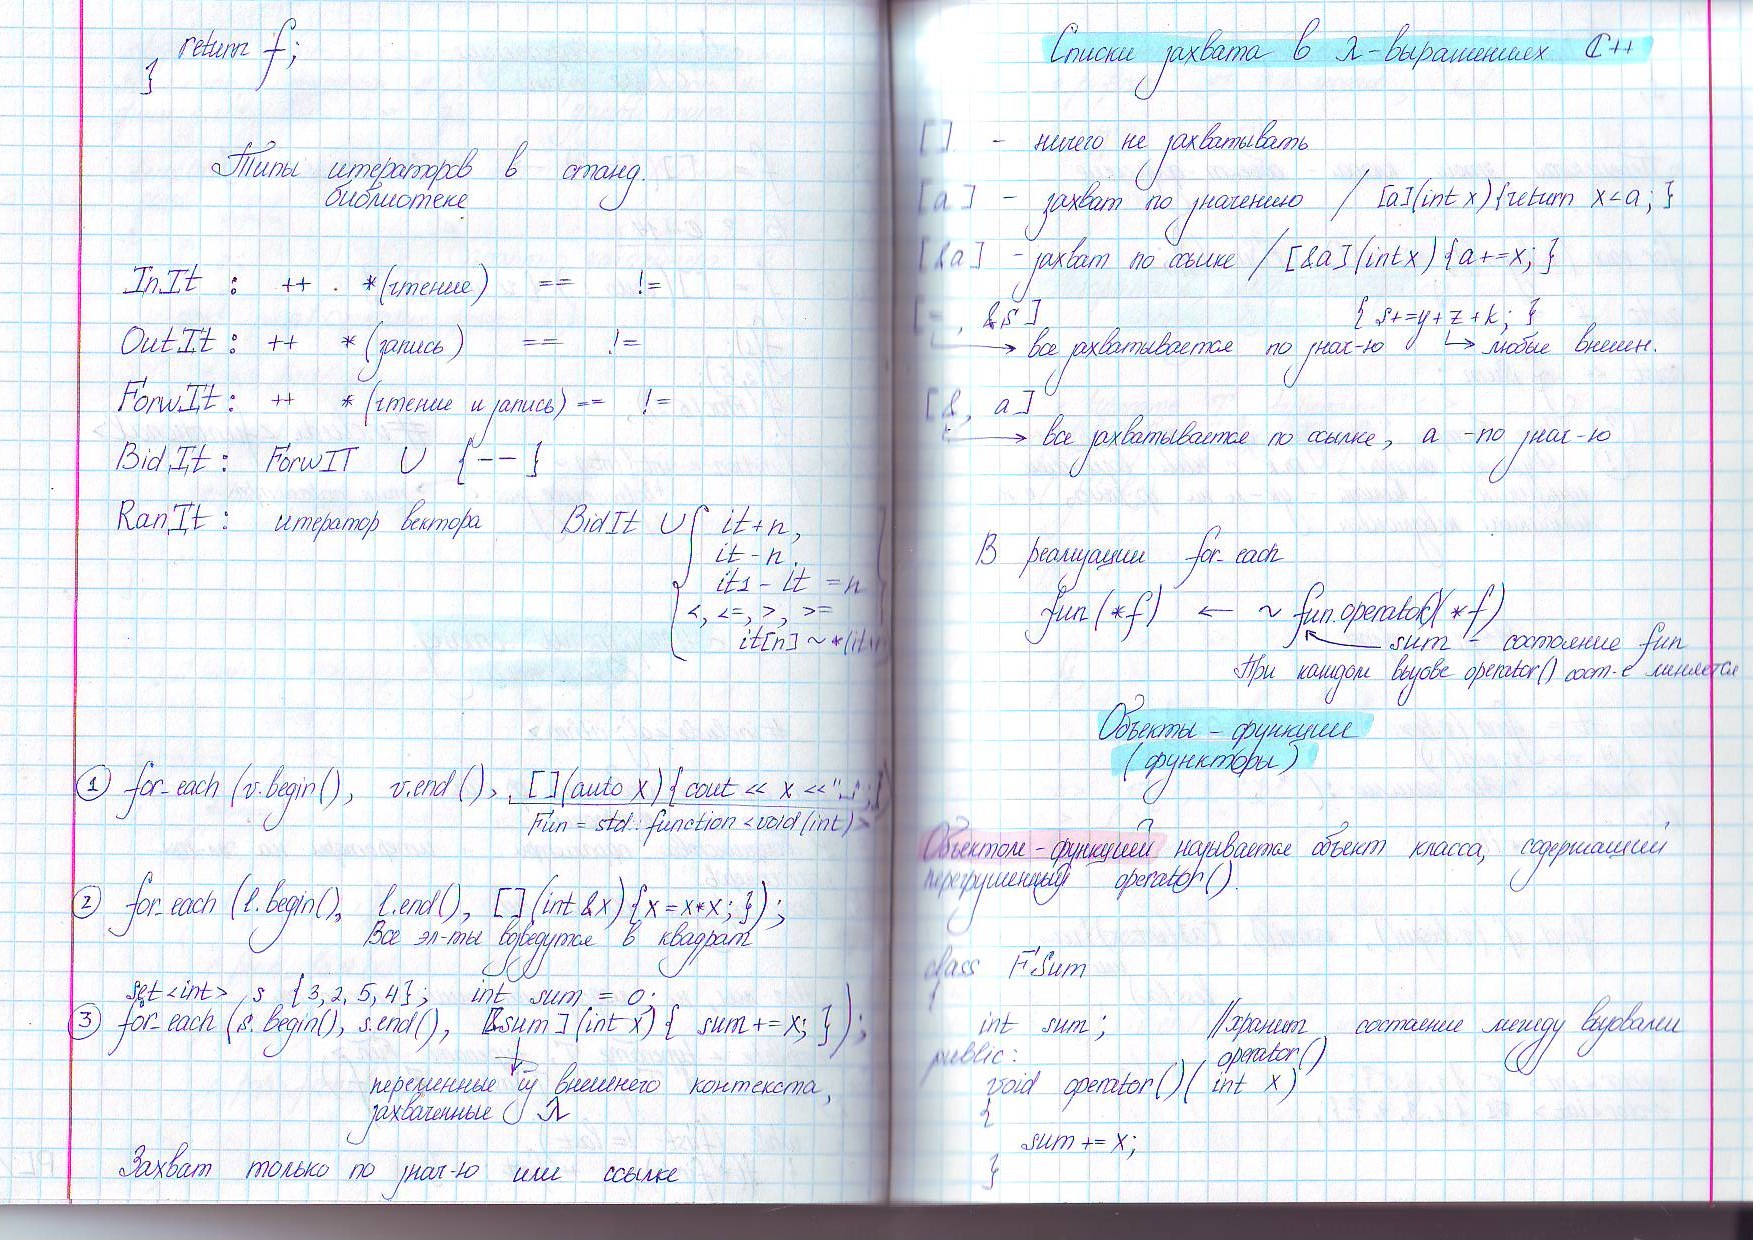 return f;
}
Типы итераторов в станд.
библиотеке
InIt : ++ . *(чтение) == !=
OutIt : ++ *(запись) == !=
ForwIt : ++ *(чтение и запись) == !=
BidIt : ForwIT ∪ {--}
RanIt : итератор вектора BidIt ∪ { it+n,
it-n,
it1 - it = n
<, <=, >, >=
it[n] ~ *(it+n
① for_each (v.begin(), v.end(), [](auto x){ cout << x <<"
Fun = std::function <void(int)>
② for_each (l.begin(), l.end(), [](int &x){x=x*x; });
Все эл-ты возведутся в квадрат
set<int> s {3, 2, 5, 4}; int sum = 0;
③ for_each (s.begin(), s.end(), [&sum](int x) { sum += x; });
переменные из внешнего контекста,
захваченные λ
Захват только по знач-ю или ссылке
Списки захвата в λ-выражениях C++
[] - ничего не захватывать
[a] - захват по значению / [a](int x){return x<a; }
[&a] - захват по ссылке / [&a](int x) {a+=x; }
[=, &s] { s+=y+z+k; }
→ все захватывается по знач-ю ↳ любые внешн.
[&, a]
→ все захватывается по ссылке, a - по знач-ю
В реализации for_each
fun(*f) ← ~ fun.operator()(*f)
sum - состояние fun
При каждом вызове operator() сост-е меняется
Объекты - функции
(функторы)
Объектом - функцией называется объект класса, содержащий
перегруженный operator().
class FSum
{
int sum; //хранит состояние между вызовами
public: operator()
void operator()(int x)
{
sum += x;
}